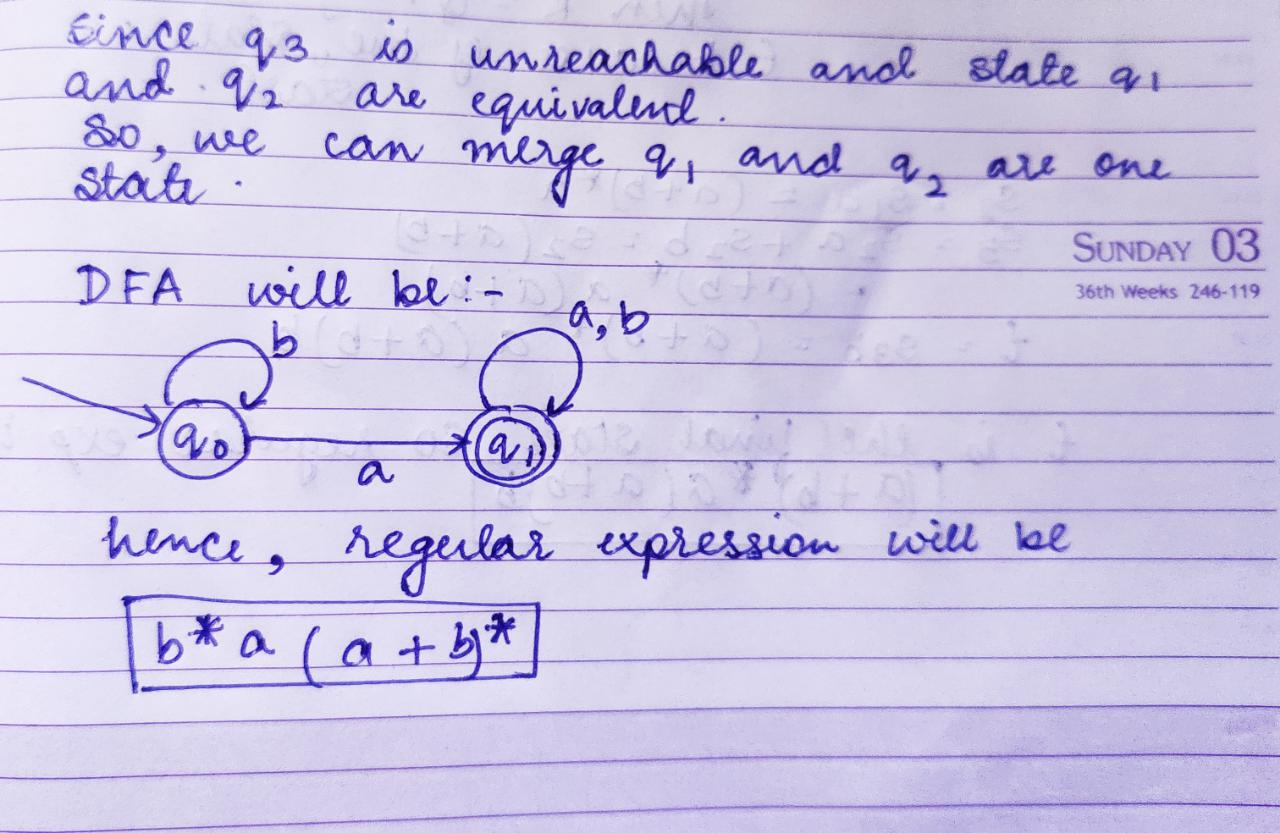 Since q3 is unreachable and state q1
and q2 are equivalent.
So, we can merge q1 and q2 are one
state.
SUNDAY 03
36th Weeks 246-119
DFA will be:-
b
a, b
q0
a
q1
hence, regular expression will be
b* a (a + b)*